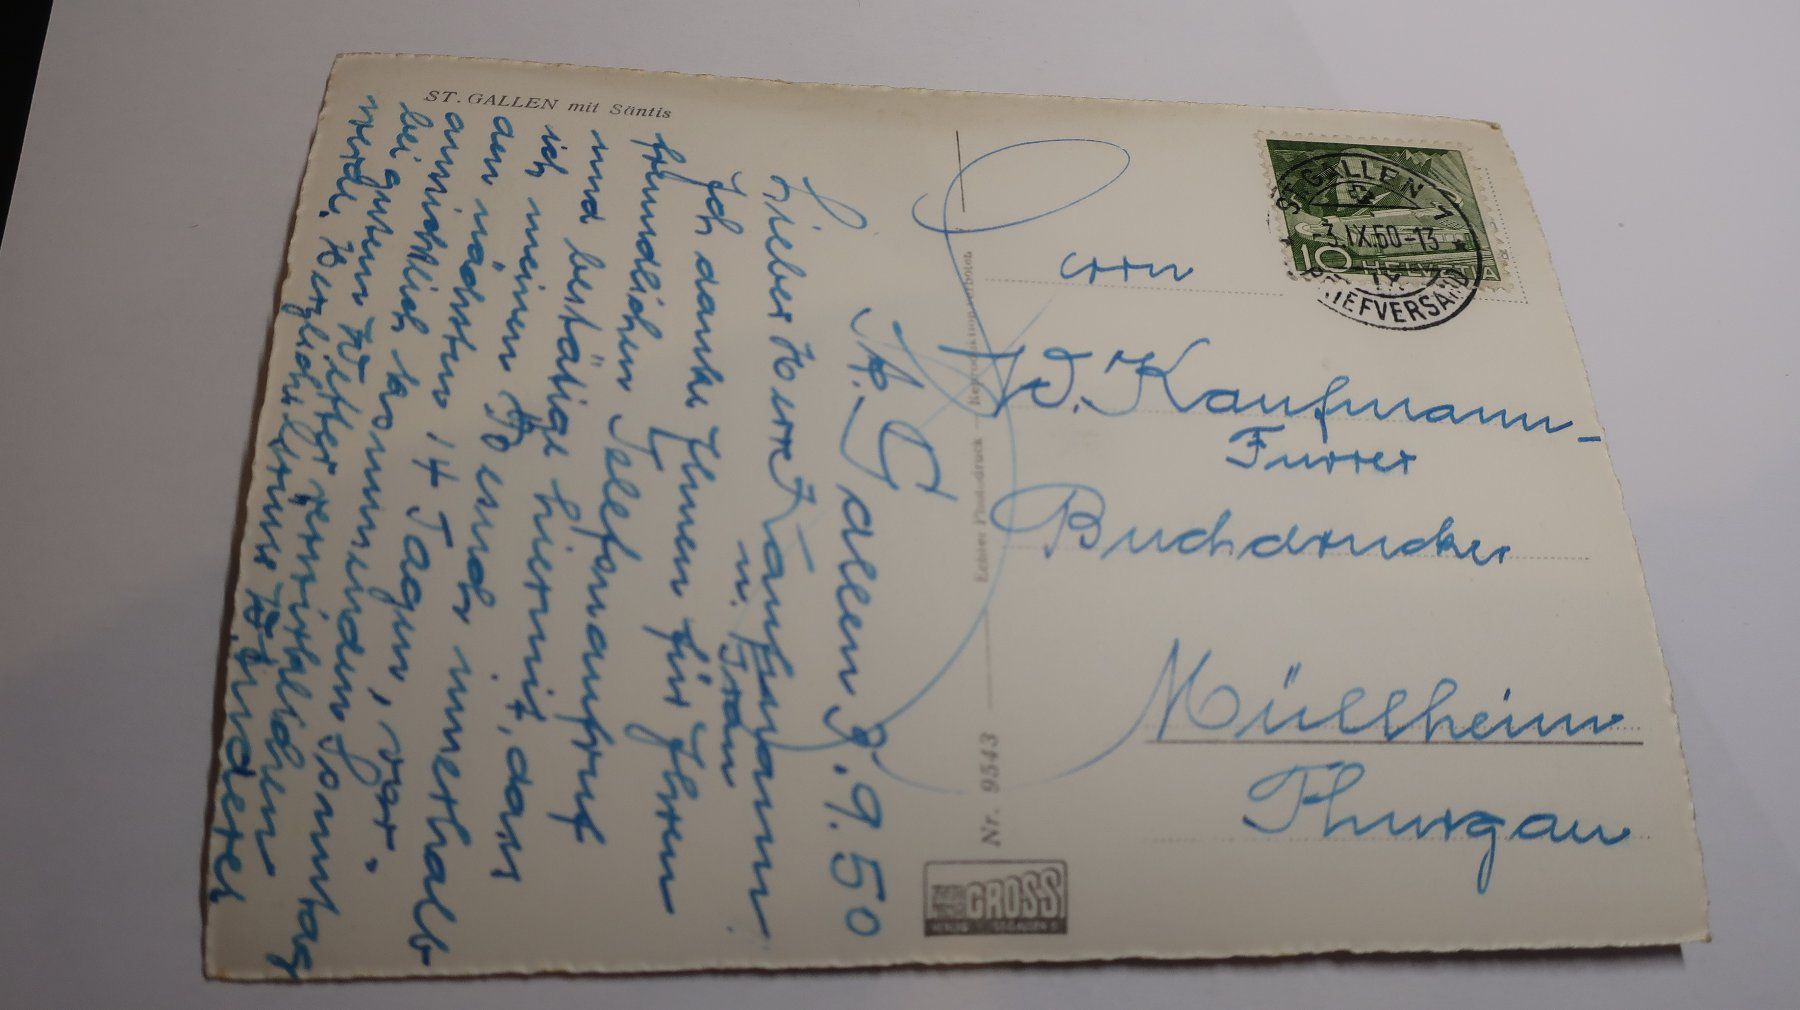 ST. GALLEN mit Säntis
St. Gallen 3. 9. 50
Lieber Herr Kaufmann
u. Frau
Ich danke Ihnen für Ihren
freundlichen Telefonanruf
und bestätige hiermit, dass
ich meinen Besuch
den nächsten 14 Tagen, innerhalb
bei gutem Wetter
kommenden Sonntag
werde. Herzliche
Echter Photodruck — Reproduktion verboten
Nr. 9543
GROSS
Herrn
W. Kaufmann-
Furrer
Buchdrucker
Müllheim
Thurgau
ST. GALLEN 1
-3.IX.50-13
BRIEFVERSAND
10 HELVETIA